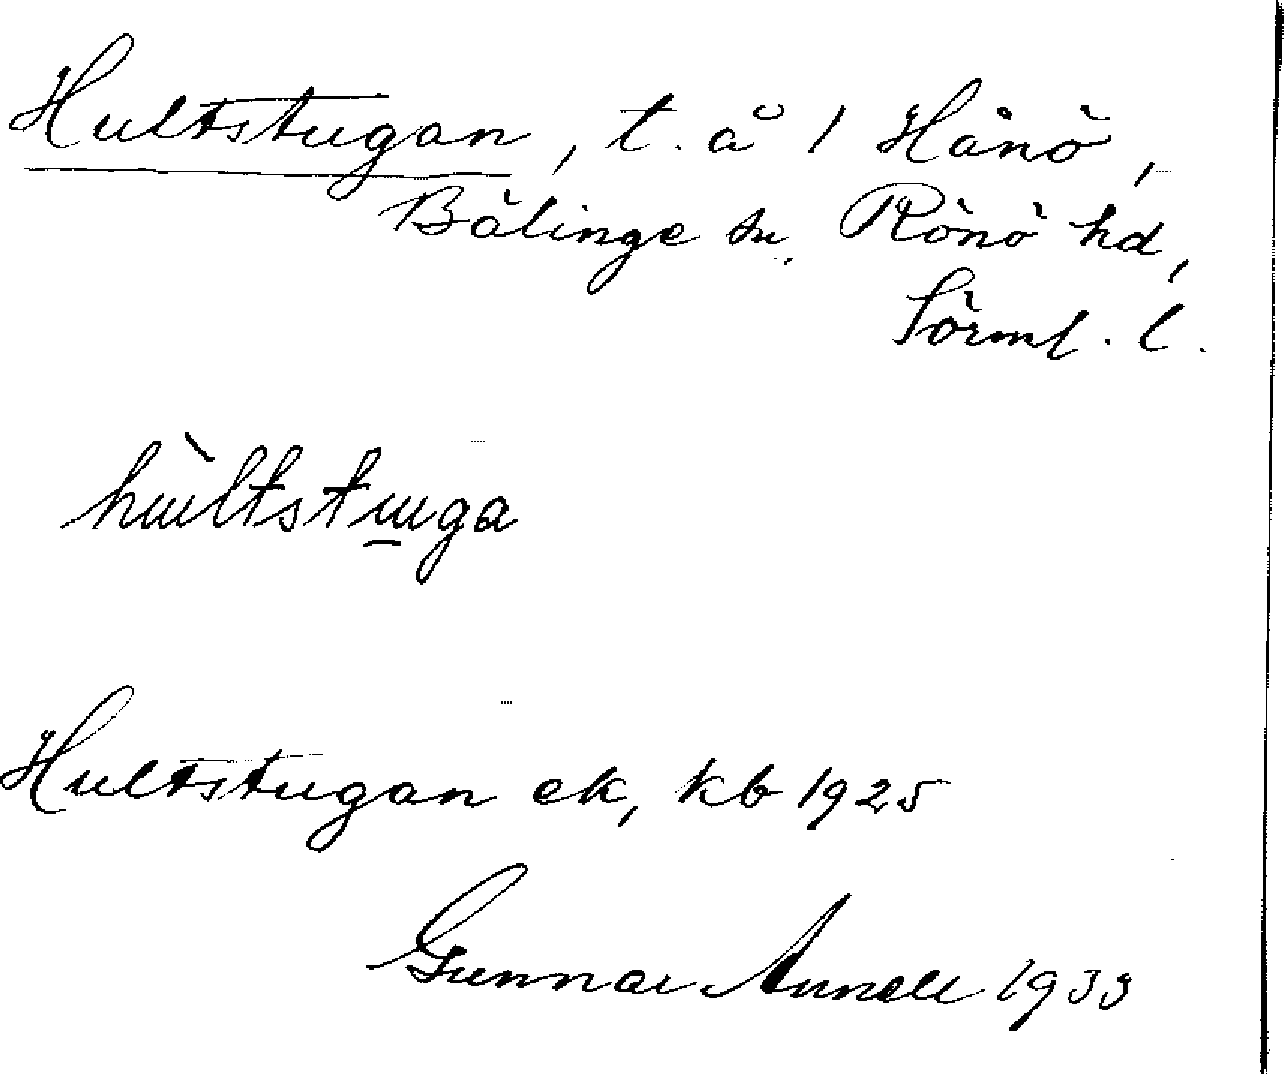 Hultstugan, t. å 1 Hånö,
Bälinge sn, Rönö hd,
Sörml. l.
hùltstuga
Hultstugan ek, kb 1925
Gunnar Annell 1933